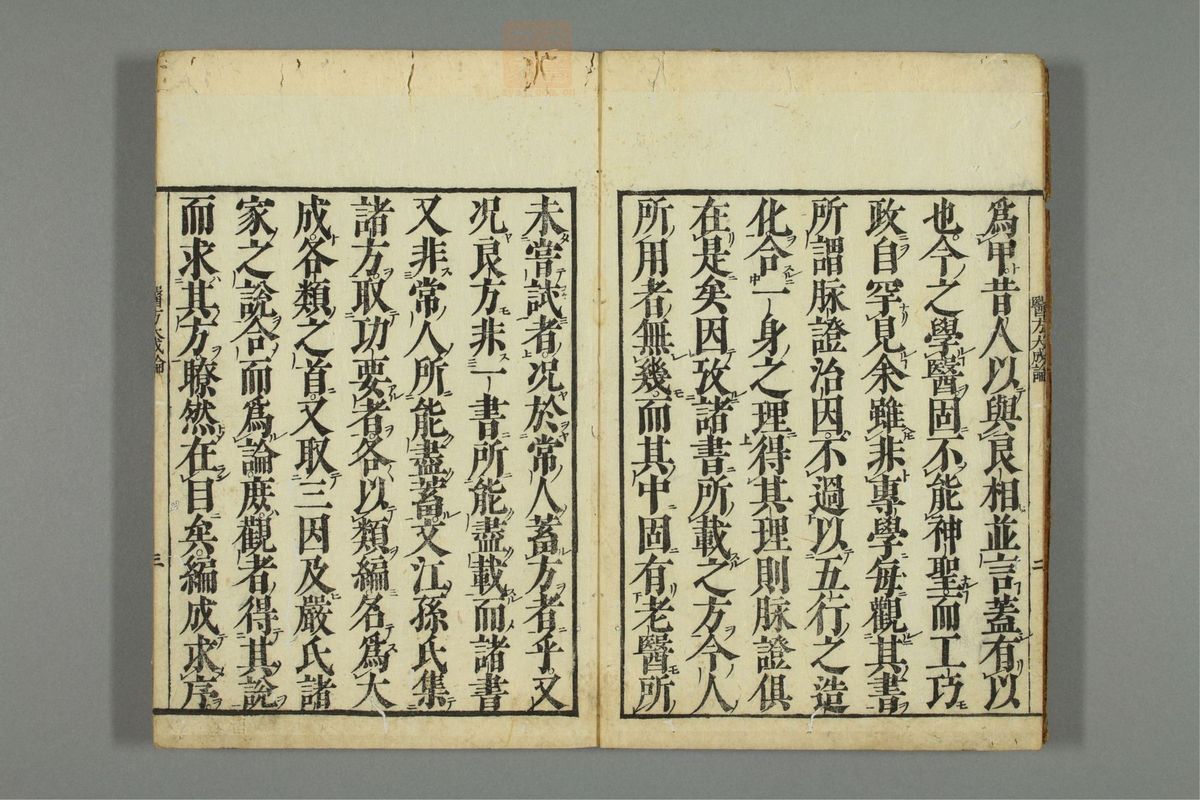 為甲昔人以與良相並言蓋有以
也今之學醫固不能神聖而工巧
政自罕見余雖非專學每觀其書
所謂脉證治因不過以五行之造
化合一身之理得其理則脉證俱
在是矣因攷諸書所載之方今人
所用者無幾而其中固有老醫所
未嘗試者况於常人蓄方者乎又
况良方非一書所能盡載而諸書
又非常人所能盡蓄文江孫氏集
諸方取功要者各以類編名為大
成各類之首又取三因及嚴氏諸
家之說合而為論庶觀者得其說
而求其方瞭然在目矣編成求序
醫方大成論
二
醫方大成論
三